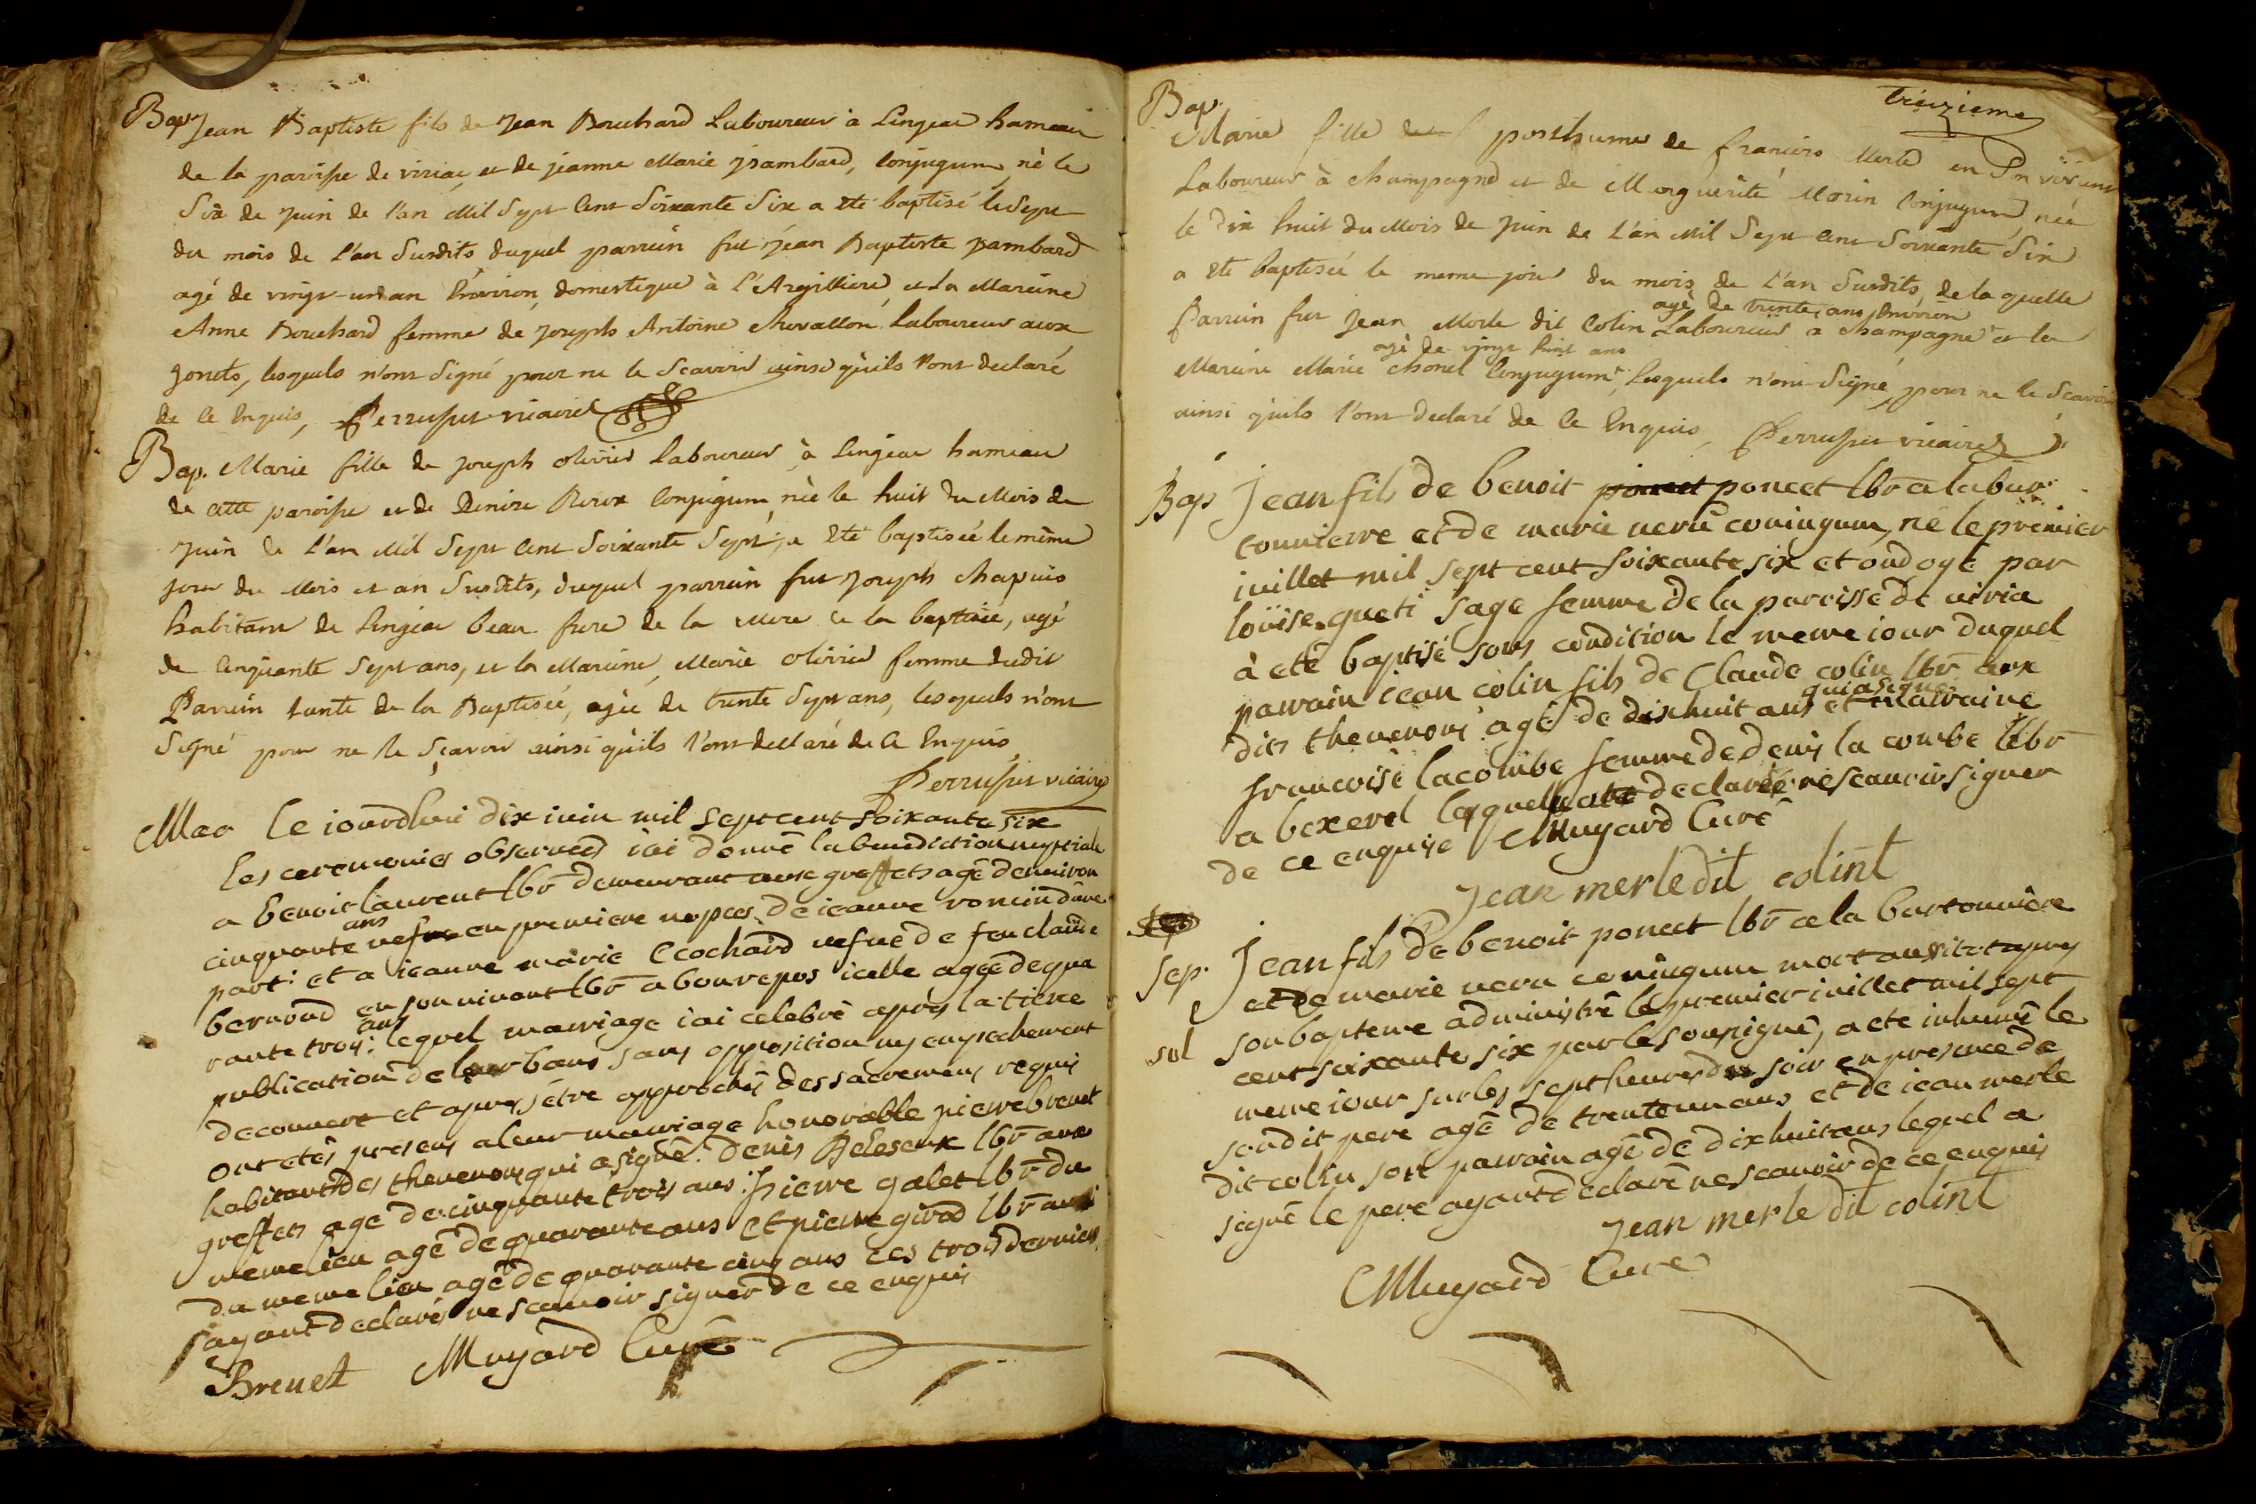 Bap. Jean Baptiste fils de Jean Bouchard Laboureur à Lingeat hameau
de la paroisse de viriac et de jeanne Marie jsambard, Conjugum, nè le
Six de Juin de l'an Mil Sept Cent Soixante Six a eté baptisé le Sept
du mois de l'an Susdits, duquel parrain fut Jean Baptiste jsambard
agé de vingt-un an Environ, domestique à l'Argilliere, et la Mareine
Anne Bouchard femme de Joseph Antoine Chevallon Laboureur aux
Jonets, lesquels n'ont Signé pour ne le Scavoir ainsi qu'ils l'ont declaré
de Ce Enquis, Perrusset vicaire
Bap. Marie fille de Joseph olivier Laboureur à Lingeat hameau
de cette paroisse et de Denise Roux Conjugum, née le huit du Mois de
Juin de l'an Mil Sept Cent Soixante Sept, a eté baptisée le même
jour du Mois et an Susdits, duquel parrain fut Joseph Chapuis
habitant de Lingeat beau frere de la Mere de la baptisée, agé
de Cinquante Sept ans, et la Mareine, Marie olivier femme dudit
Parrein tante de la Baptisée, agée de trente Sept ans, lesquels n'ont
Signé pour ne le Sçavoir ainsi qu'ils l'ont declaré de Ce Enquis
Perrusset vicaire
Mar Le iourdhui dix iuin mil sept cent soixante six
les ceremonies observées i'ai donné la benediction nuptiale
a benoit laurent lbr demeurant aux greffets agé denviron
cinquante ans vefve en premiere nopces de ieanne romin dune
part: et a ieanne marie Cochard vefve de feu claude
bernoud en son vivant lbr a bourepos icelle agée de qua
rante trois ans: lequel mariage i'ai celebré apres la tierce
publication de leur bans sans opposition ny empechement
decouvert et apres s'étre approchés des sacremens requis
ont etés presens a leur mariage honorable pierre brevet
habitant des thevenons qui a signé. denis Deleseux lbr aux
greffets agé de cinquante trois ans: pierre galet lbr du
meme lieu agé de quarante ans et pierre girod lbr aussi
du meme lieu agé de quarante cinq ans ces trois derniers
ayant declarés ne scauoir signer de ce enquis
Brevet Muyard Curé
treizieme
Bap.
Marie fille posthume de francois Merle en Son vivant
Laboureur à Champagne et de Marguerite Morin Conjugum, née
le dix huit du Mois de Juin de L'an Mil Sept Cent Soixante Six
a eté baptisée le meme jour du mois de l'an Susdits, de laquelle
agé de trente ans Environ
Parrein fut Jean Merle dit Colin Laboureur a Champagne et la
agé de vingt huit ans
Mareine Marie Chonel Conjugum, lesquels n'ont Signé pour ne le Scavoir
ainsi qu'ils l'ont declaré de Ce Enquis, Perrusset vicaire
Bap Jean fils de benoit poncet lbr a la bar
tonnierre et de marie veru coniugum, né le premier
iuillet mil sept cent soixante six et ondoyé par
loüise gueti sage femme de la paroisse de viria
à eté baptisé sous condition le meme iour duquel
parrain iean colin fils de Claude colin lbr aux
qui a signé
dits thevenons agé de dixhuit ans et marraine
francoise lacombe femme de denis la combe lbr
a bexerel laquelle a declarée ne scauoir signer
de ce enquise Muyard Curé
jean merle dit colint
Sep. Jean fils de benoit poncet lbr a la bartonniére
et de marie veru coniugum mort aussitot apres
sol son bapteme administré le premier iuillet mil sept
cent soixante six par le soussigné, a eté inhumé le
meme iour sur les sept heures du soir en presence de
sondit pere agé de trente un ans et de iean merle
dit collin son parrain agé de dixhuit ans lequel a
signé le pere ayant declaré ne scauoir de ce enquis
jean merle dit colint
Muyard Curé